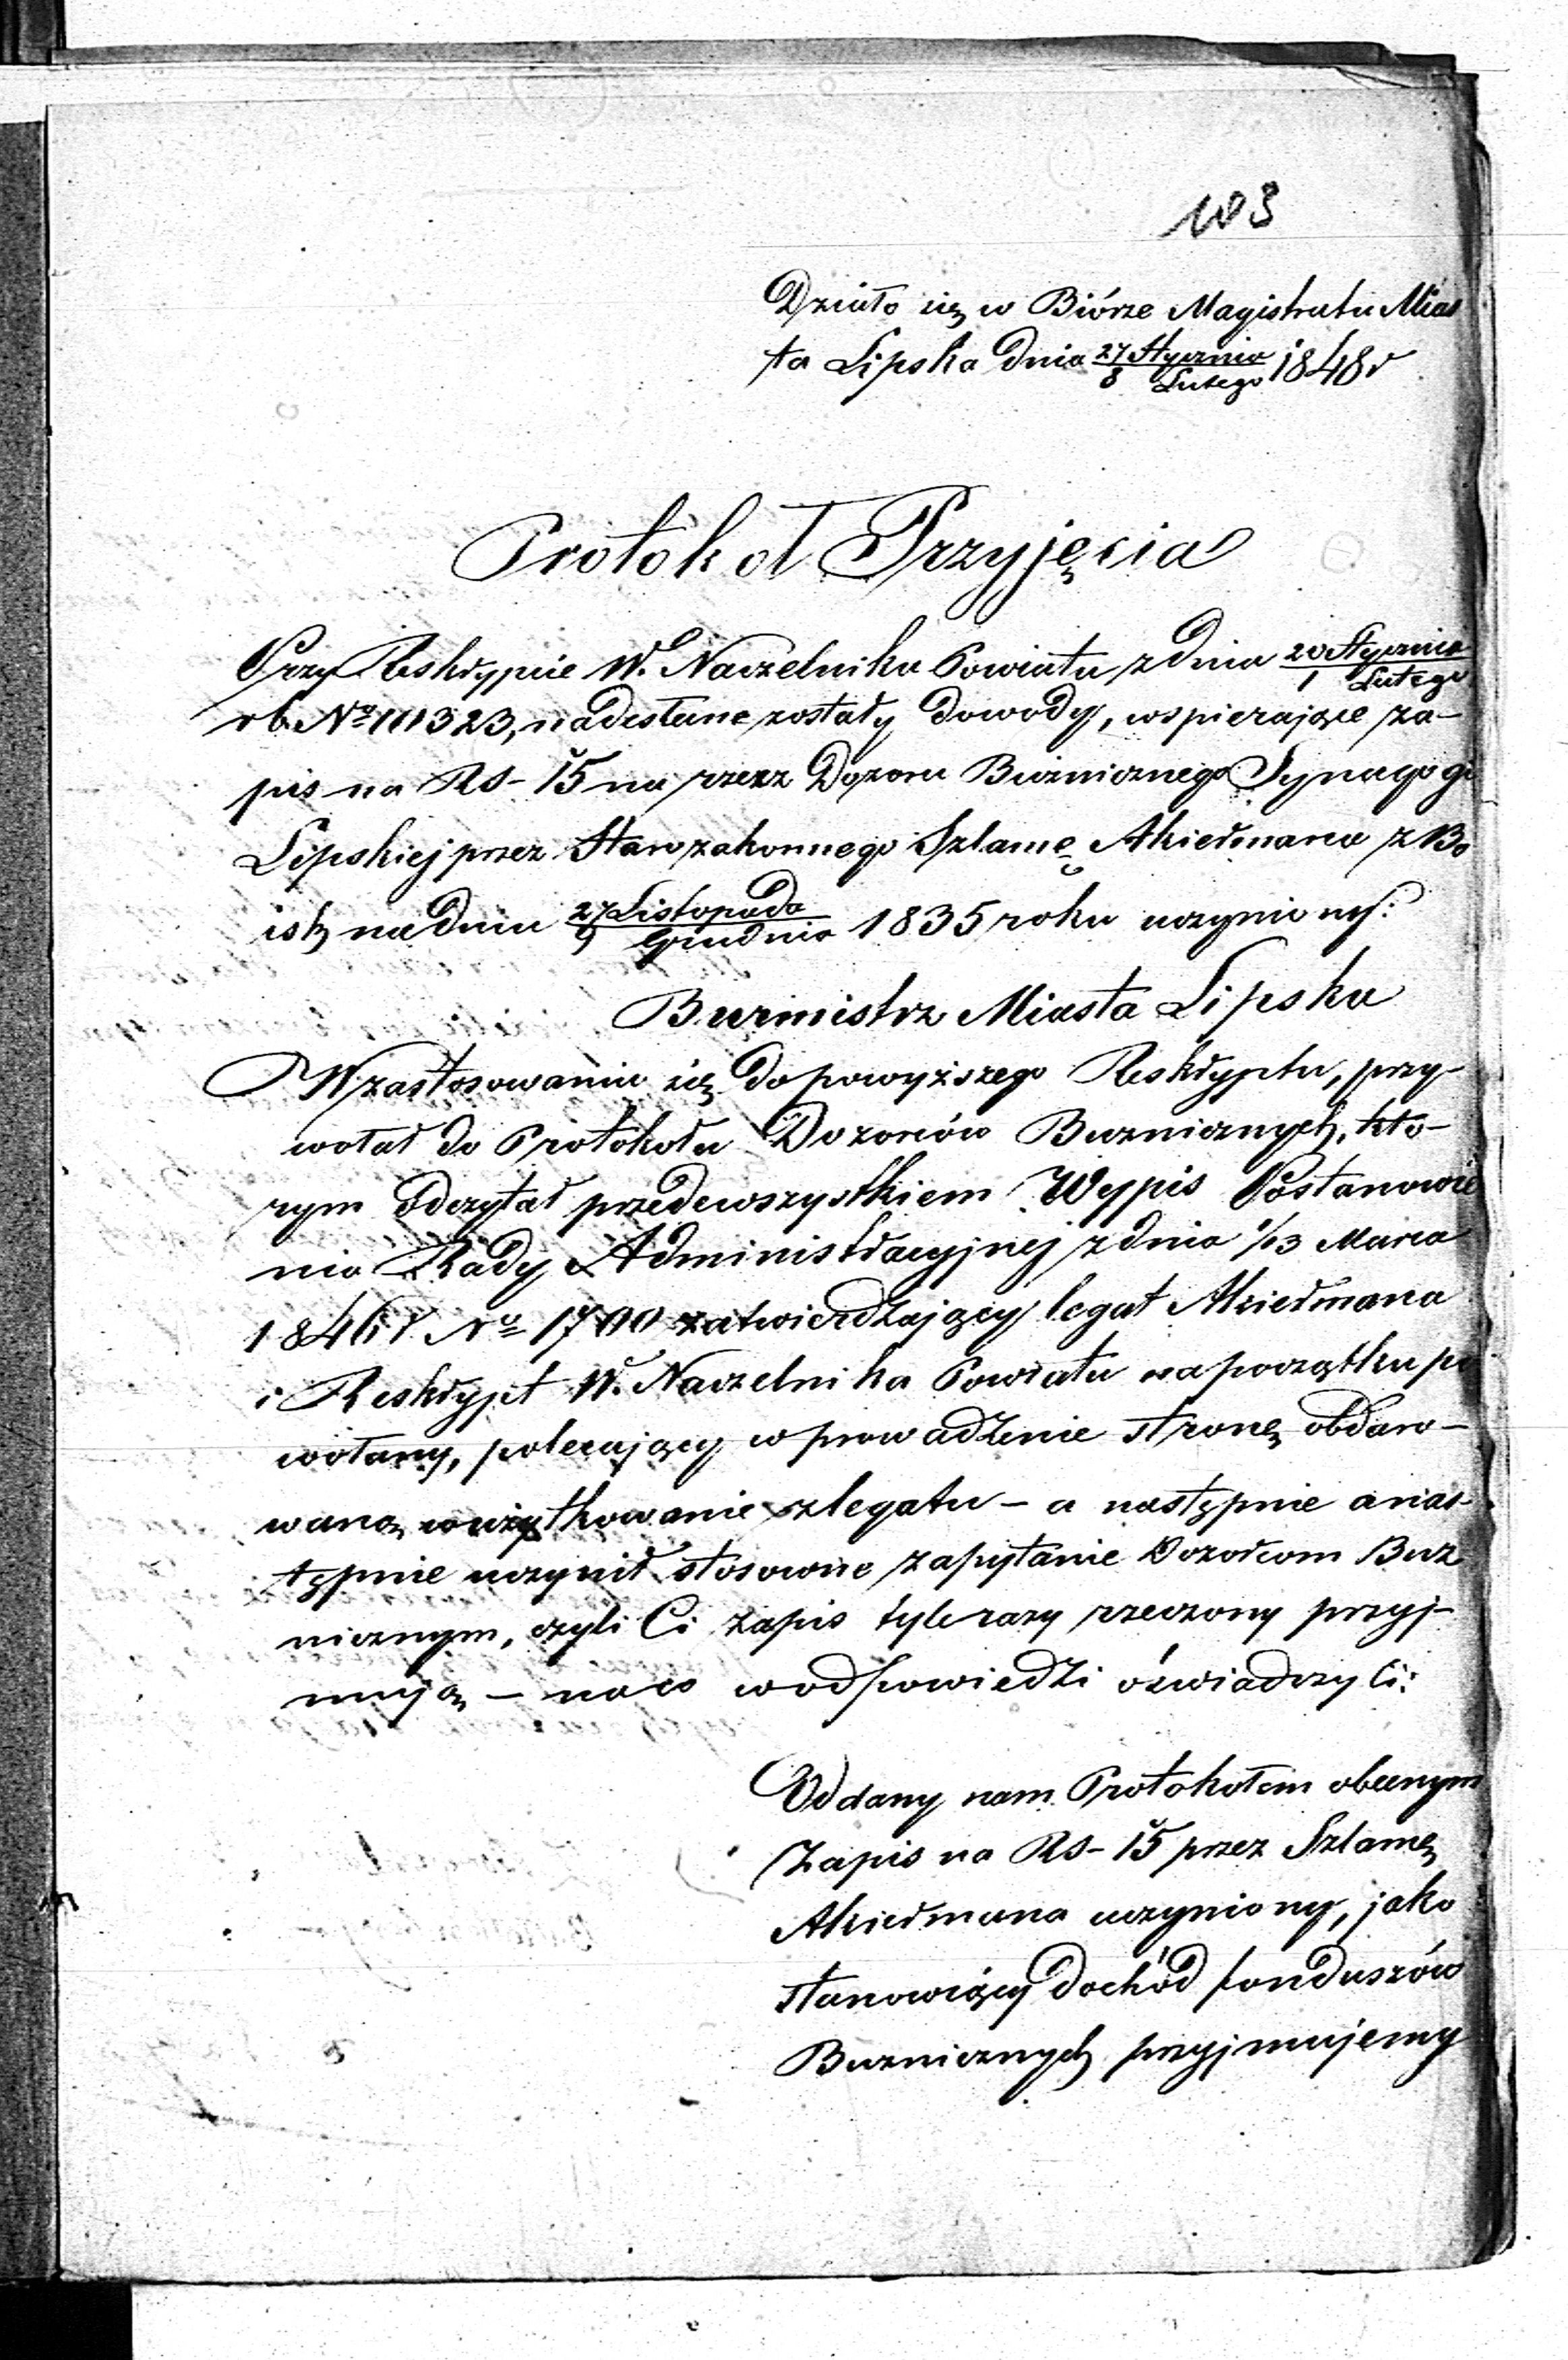 103
Działo się w Biórze Magistratu Mias
ta Lipska dnia 27 Stycznia / 8 Lutego 1848 r
Protokół Przyjęcia
Przy Reskrypcie W. Naczelnika Powiatu z dnia 20 Stycznia / 1 Lutego
rb. No 111323, nadesłane zostały dowody, wspierające za-
pis na RS- 15 na rzecz Dozoru Bużnicznego Synagogi
Lipskiej przez Starozakonnego Szlamę Akiermana z
na dniu 27 Listopada / 9 Grudnia 1835 roku uczyniony:
Burmistrz Miasta Lipska
W zastosowaniu się do powyższego Reskryptu, przy-
wołał do Protokołu Dozorców Buznicznych, któ-
rym odczytał przedewszystkiem Wypis Postanowie
nia Rady Administracyjnej z dnia 1/13 Marca
1846 r No 1700 zatwierdzający legat Akiermana
i Reskrypt W. Naczelnika Powiatu na początku po
wołany, polecający wprowadzenie stronę obdaro-
waną w użytkowanie z legatu - a następnie a nas-
tępnie uczynił stosowne zapytanie Dozorcom Buz
nicznym, czyli Ci zapis tyle razy rzeczony przyj-
mują - na co w odpowiedzi oświadczyli:
Oddany nam Protokołem obecnym
Zapis na RS- 15 przez Szlamę
Akiermana uczyniony, jako
stanowiący dochód funduszów
Buznicznych przyjmujemy